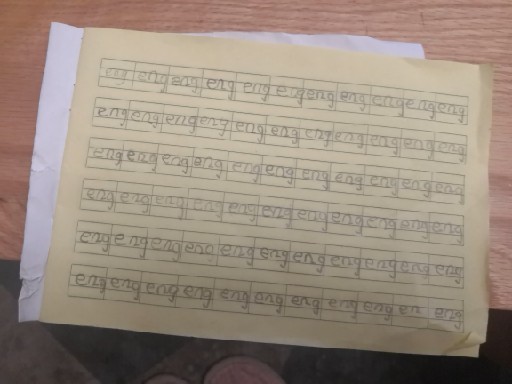 eng eng eng eng eng eng eng eng eng eng eng
eng eng eng eng eng eng eng eng eng eng eng
eng eng eng eng eng eng eng eng eng eng eng
eng eng eng eng eng eng eng eng eng eng eng
eng eng eng eng eng eng eng eng eng eng eng
eng eng eng eng eng eng eng eng eng en eng